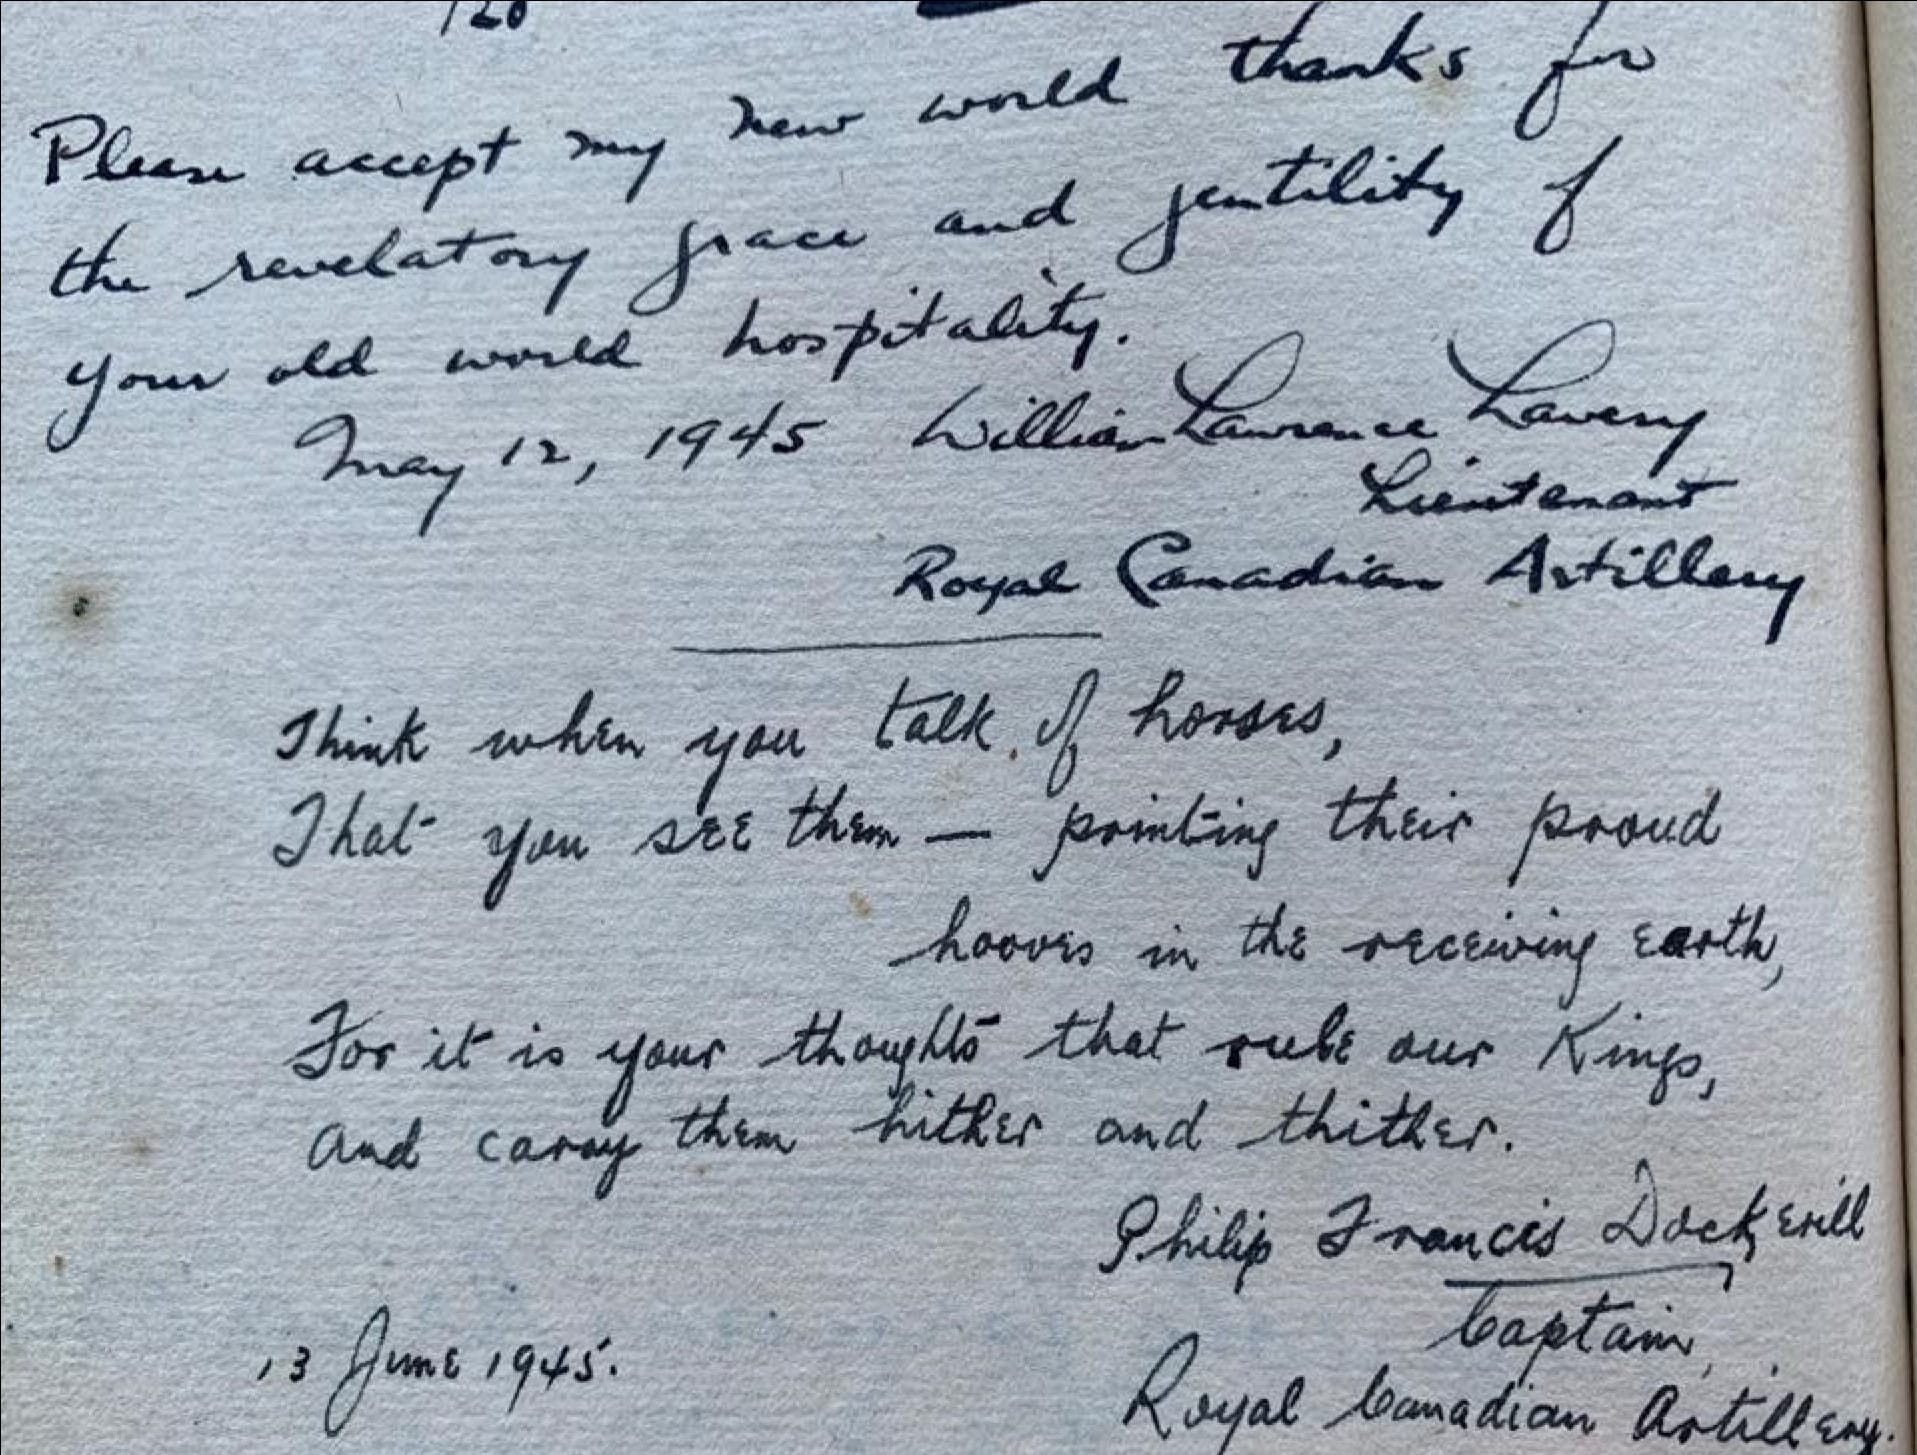 120
Please accept my new world thanks for
the revelatory grace and gentility of
your old world hospitality.
May 12, 1945 William Lawrence Lavery
Lieutenant
Royal Canadian Artillery
Think when you talk of horses,
That you see them — printing their proud
hooves in the receiving earth,
For it is your thoughts that rule our Kings,
and carry them hither and thither.
Philip Francis Dockerill
Captain,
13 June 1945.
Royal Canadian Artillery.